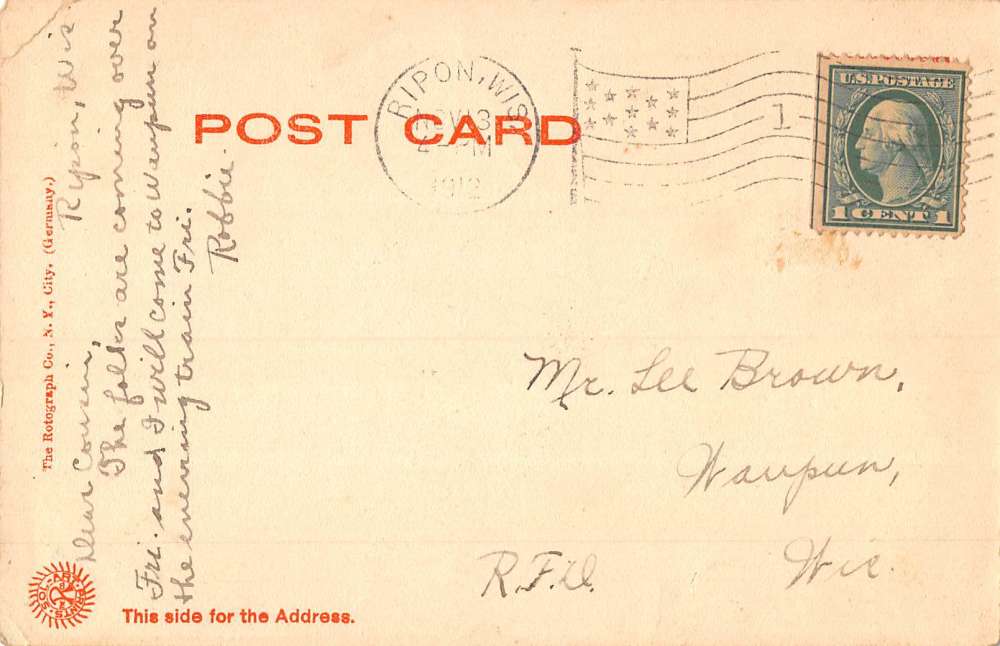 POST CARD
RIPON, WIS
NOV 13
PM
1912
1
U.S. POSTAGE
1 CENT 1
Ripon, Wis.
Dear Cousin,
The folks are coming over
Fri. and I will come to Waupun on
the evening train Fri.
Robbie.
Mr. Lee Brown,
Waupun,
Wis.
R.F.D.
The Rotograph Co., N. Y., City. (Germany.)
SOL-ART PRINTS
This side for the Address.